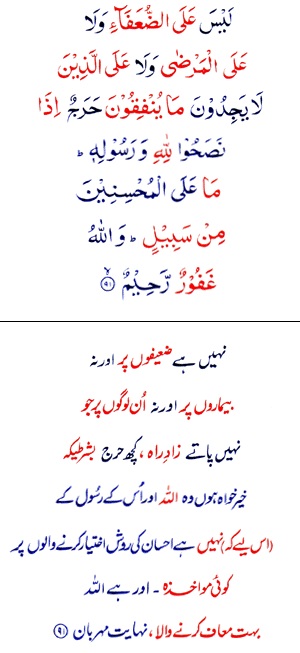 لَيْسَ عَلَى الضُّعَفَآءِ وَلَا
عَلَى الْمَرْضٰى وَلَا عَلَى الَّذِيْنَ
لَا يَجِدُوْنَ مَا يُنْفِقُوْنَ حَرَجٌ اِذَا
نَصَحُوْا لِلّٰهِ وَ رَسُوْلِهٖ ؕ
مَا عَلَى الْمُحْسِنِيْنَ
مِنْ سَبِيْلٍ ؕ وَ اللّٰهُ
غَفُوْرٌ رَّحِيْمٌ ۙ﴿۹۱﴾
نہیں ہے ضعیفوں پر اور نہ
بیماروں پر اور نہ اُن لوگوں پر جو
نہیں پاتے زادِراہ ، کچھ حرج بشرطیکہ
خیر خواہ ہوں وہ اللہ اور اُس کے رسُول کے
(اس لیے کہ) نہیں ہے احسان کی روش اختیار کرنے والوں پر
کوئی مواخذہ ۔ اور ہے اللہ
بہت معاف کرنے والا ، نہایت مہربان ﴿۹۱﴾